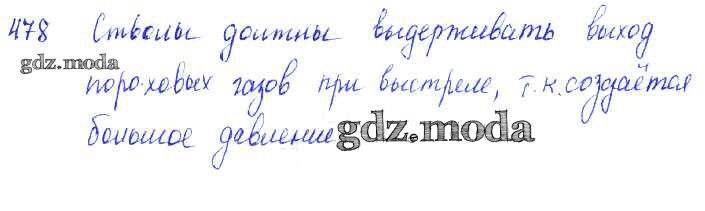 478 Стволы должны выдерживать выход
gdz.moda
пороховых газов при выстреле, т.к. создаётся
большое давление.
gdz.moda